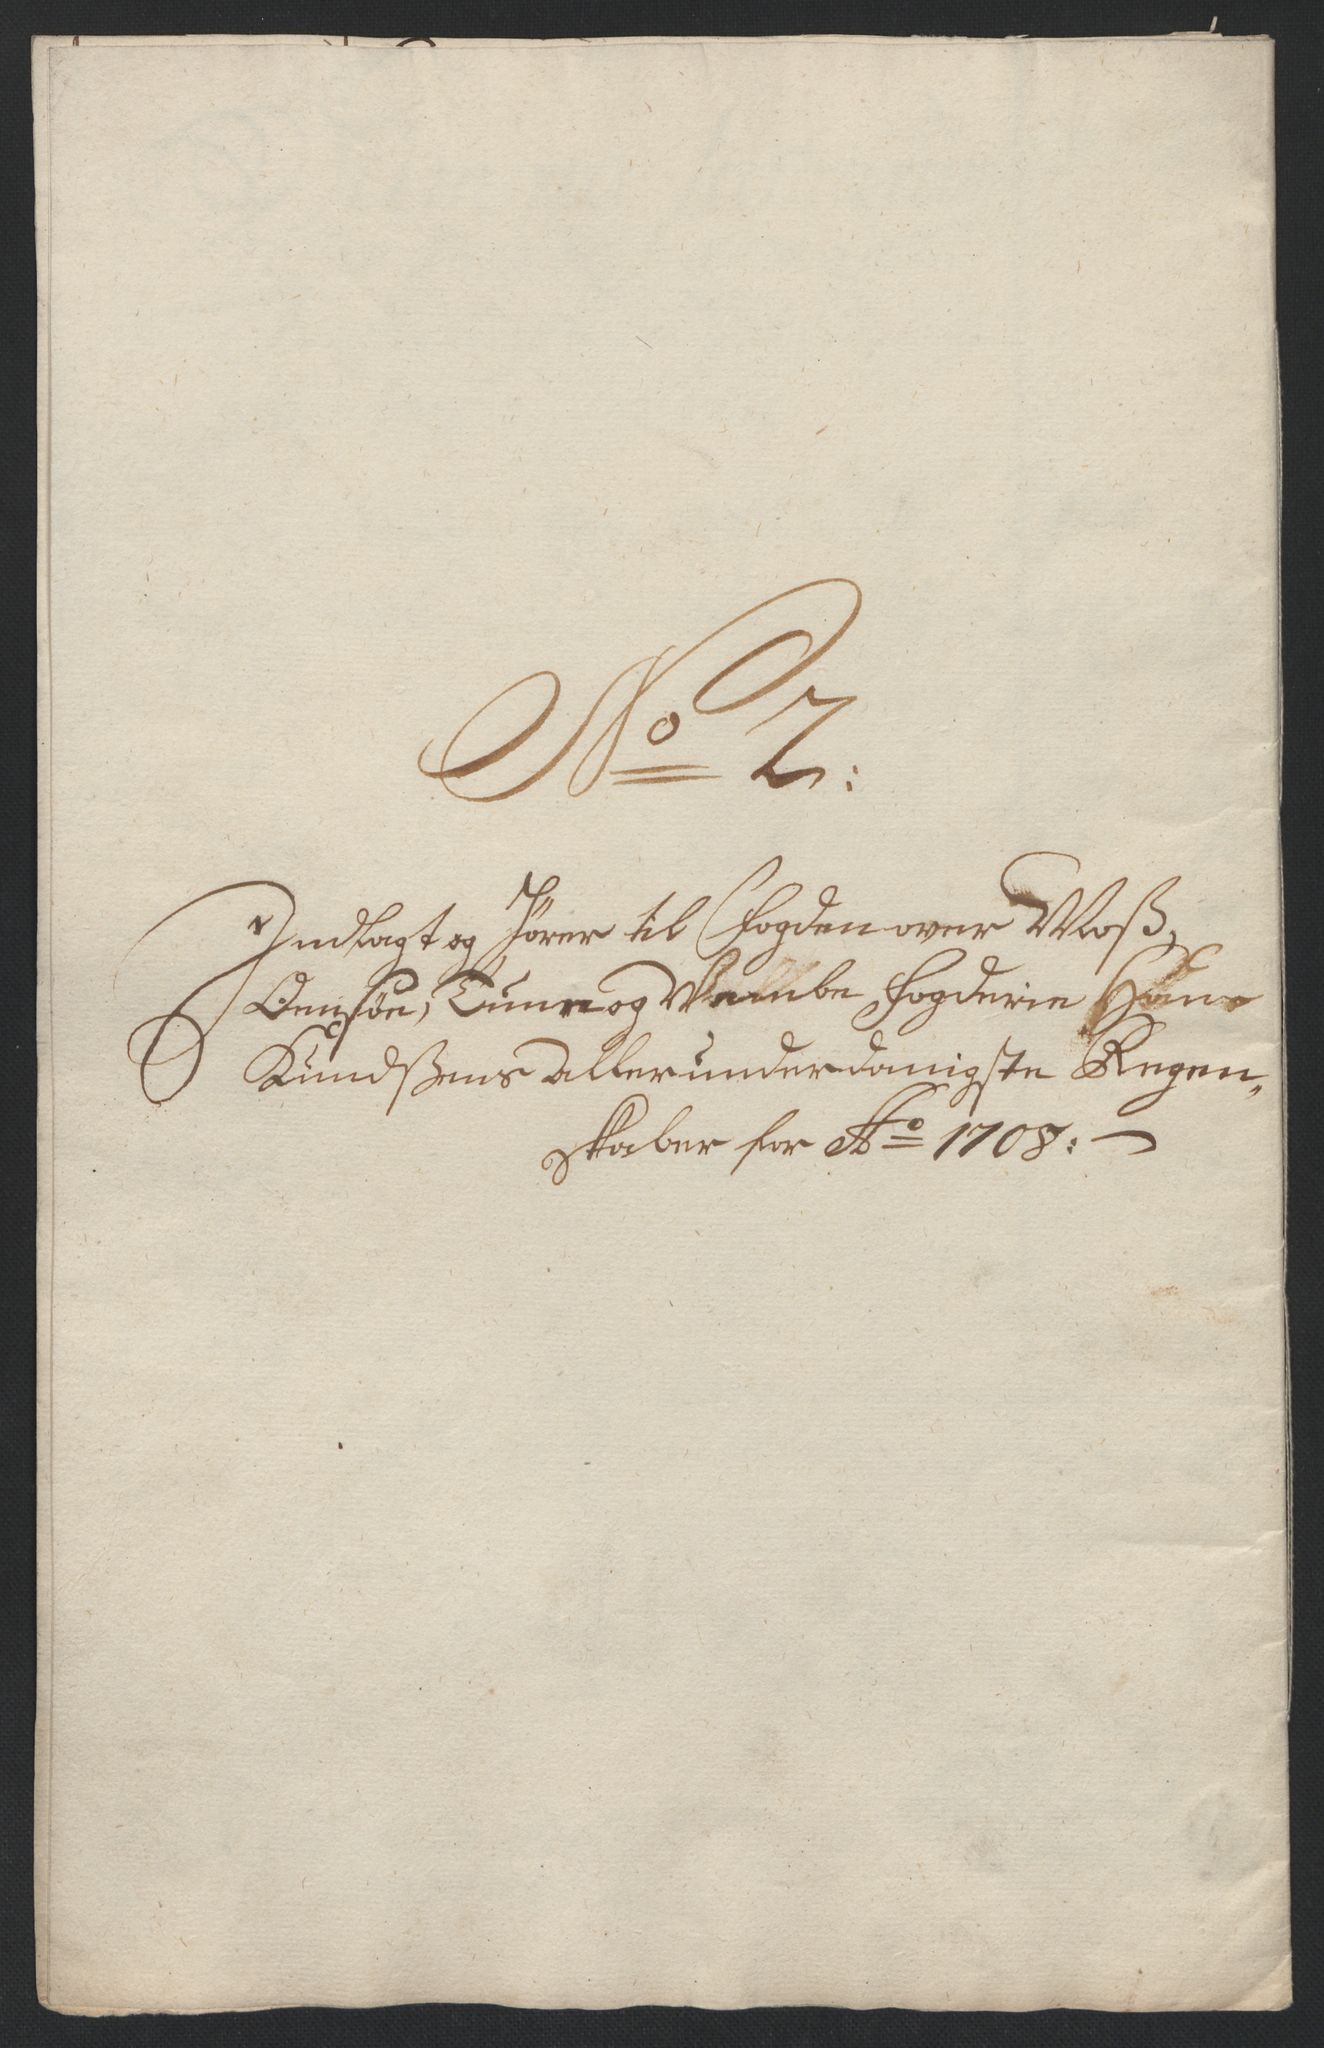 No 2:
Indlagt og hörer til Fogden over Moß,
Onsöe, Tune og Wembe Fogderie Hans
Knudßens allerunderdanigste Regen„
skaber for Ao 1708: —